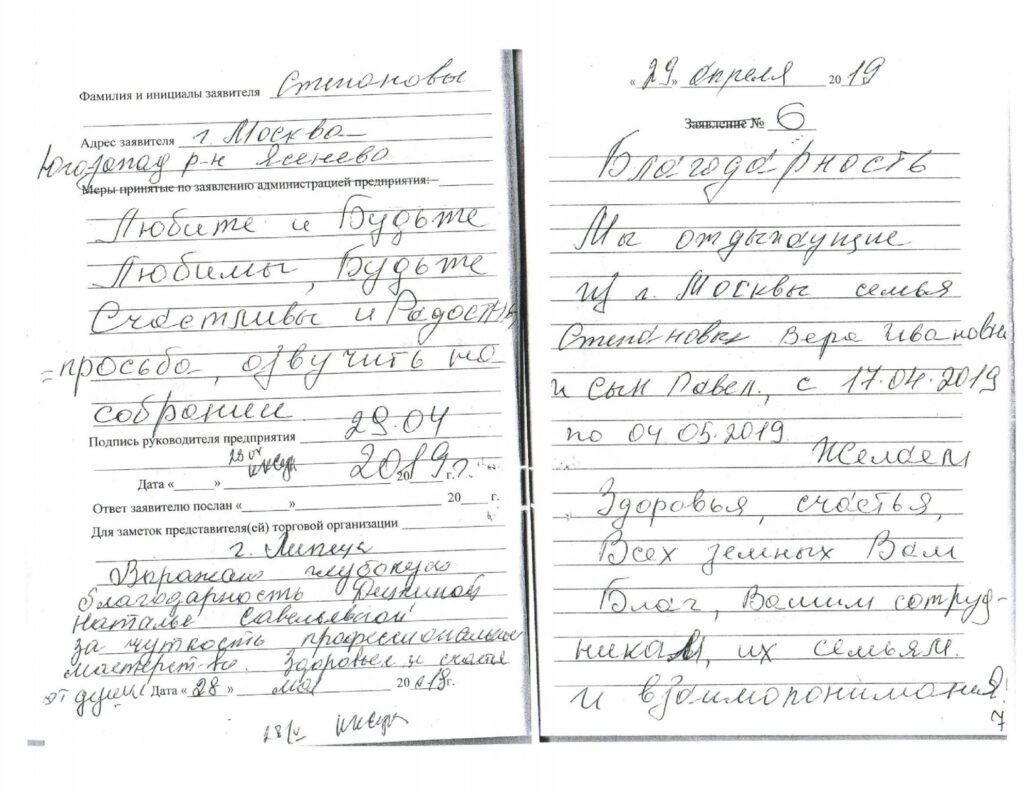 Фамилия и инициалы заявителя Степановы
Адрес заявителя г. Москва
Югозапад р-н Ясенево
Меры принятые по заявлению администрацией предприятия:
Любите и Будьте
Любимы, Будьте
Счастливы и Радостны
= просьба, озвучить на
собрании
Подпись руководителя предприятия 29.04
2019 г.
Дата « » 20 г.
Ответ заявителю послан « » 20 г.
Для заметок представителя(ей) торговой организации
г. Липецк
Выражаю глубокую
благодарность
Наталье Савельевной
за чуткость профессиональное
мастерство. Здоровья и счастья
от души Дата « 28 » мая 20 г.
« 29 » апреля 2019
Заявление № 6
Благодарность
Мы отдыхающие
из г. Москвы семья
Степановых Вера Ивановна
и сын Павел., с 17.04.2019
по 04 05.2019
Желаем
Здоровья, счастья,
Всех земных Вам
Благ, Вашим сотруд-
никам, их семьям.
и взаимопонимания!
7